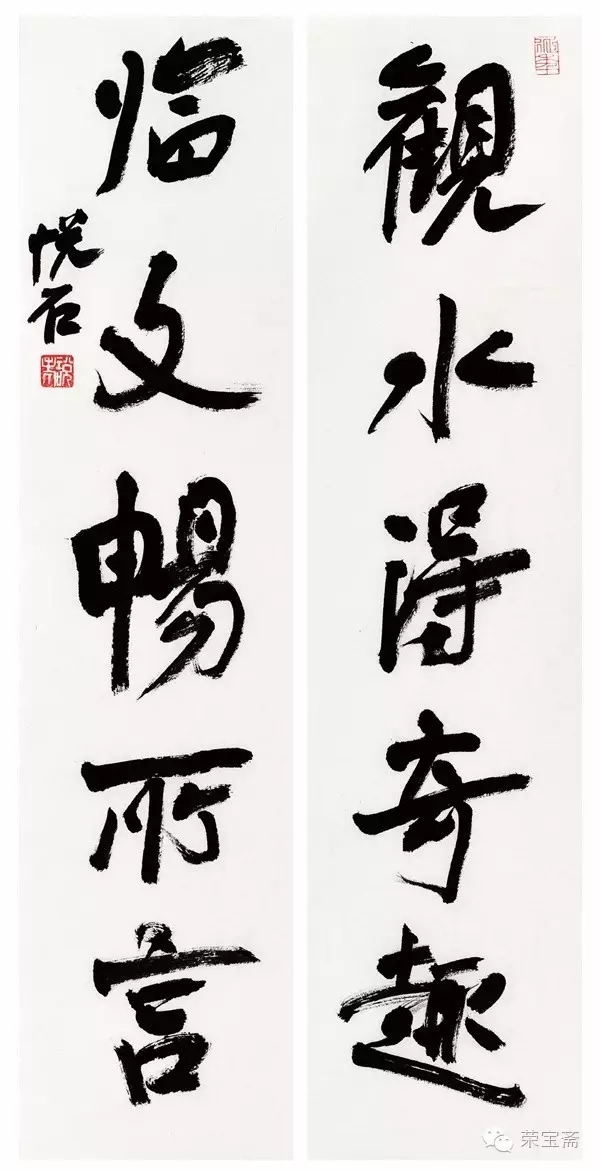 觀水得奇趣
临文暢所言
悦石
荣宝斋